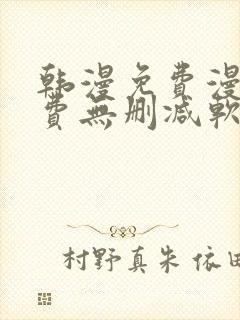 韩漫免費漫
費無删减軟
村野真朱 依田